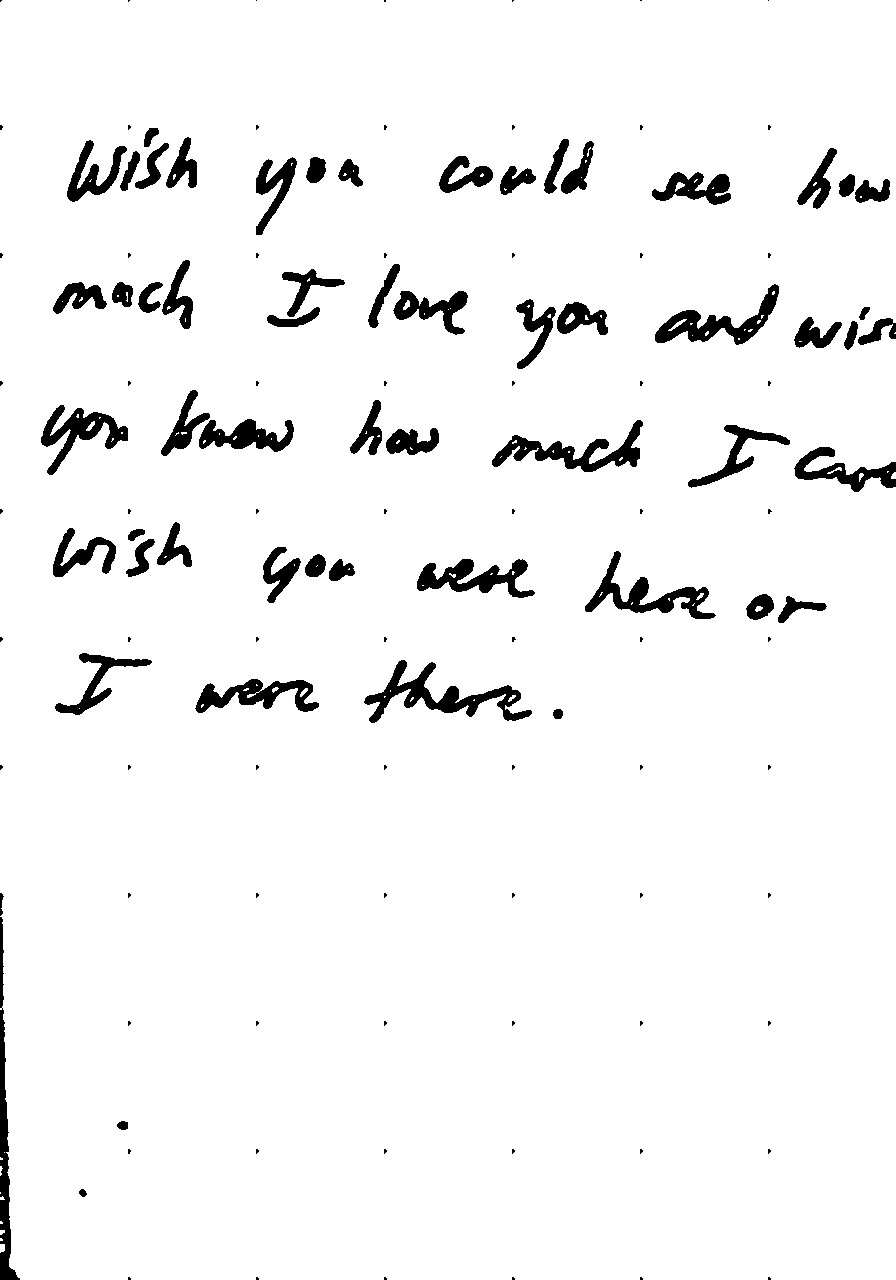 Wish you could see how
much I love you and wish
you know how much I care
wish you were here or
I were there.